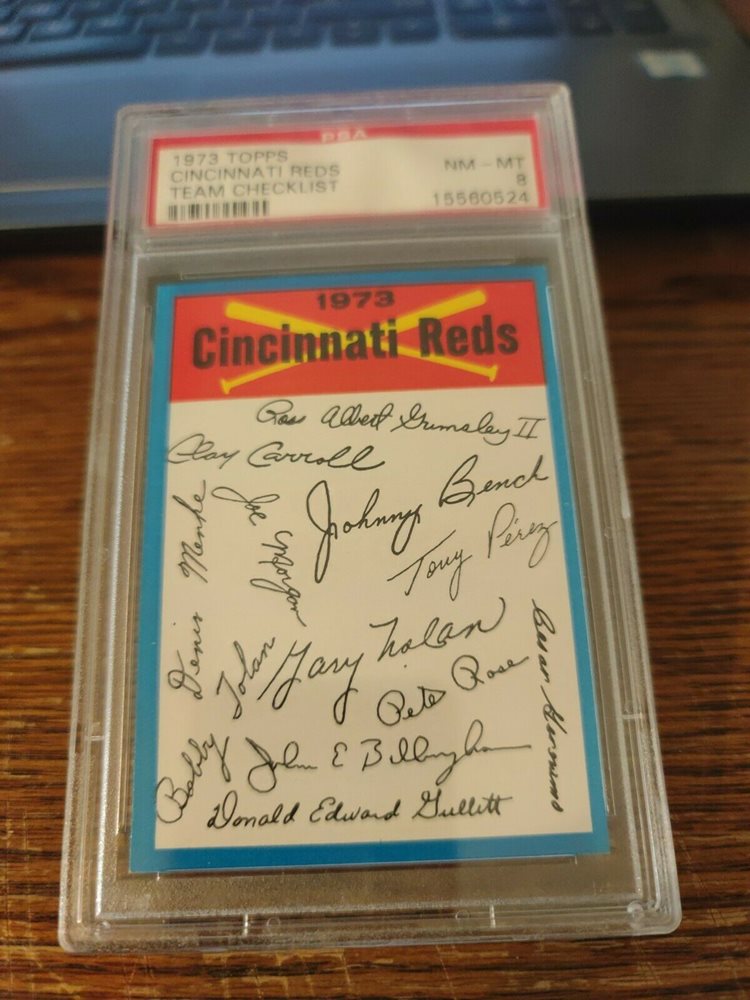 PSA
1973 TOPPS
CINCINNATI REDS
TEAM CHECKLIST
NM - MT
8
15560524
1973
Cincinnati Reds
Ross Albert Grimsley II
Clay Carroll
Johnny Bench
Joe Morgan
Denis Menke
Tony Pérez
Gary Nolan
Bobby Tolan
Pete Rose
Cesar Geronimo
John E Billingham
Donald Edward Gullett